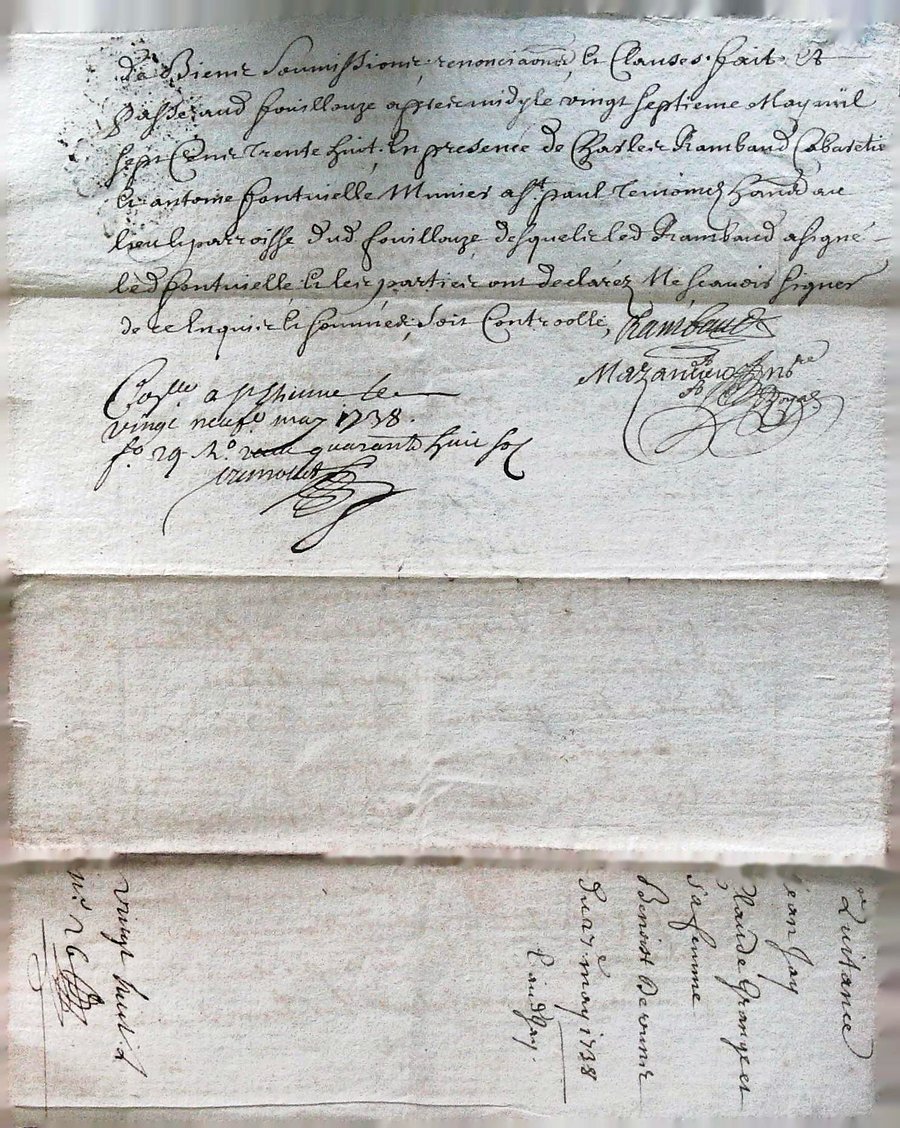 de Biens soumissions, renonciaons, et Clauses. fait Et
passé aud fouillouze apres midy le vingt septieme May mil
sept Cents trente huit, En presence de Charles Rambaud Cabaretie
Et antoine fontvielle Munier a St. paul temoins
lieu & parroisse dud fouillouze, desquels led Rambaud a signé
led fontvielle Et les parties ont declarez Ne scavoir signer
de ce Enquis Et sommés, soit Controollé, Rambaud
Royal
Coslle a St Ethienne le
vingt neufe may 1738.
fo. 29 Ro quarante huit sols
Quitance
jean Jay
Claude Grange et
sa femme
Benoist
Du 27e may 1738
vingt huit s
n.s 26